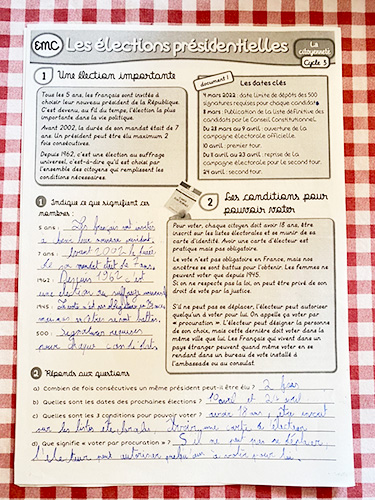 EMC
Les élections présidentielles
La citoyenneté
Cycle 3
1 Une élection importante
Tous les 5 ans, les français sont invités à
choisir leur nouveau président de la République.
C'est devenu, au fil du temps, l'élection la plus
importante dans la vie politique.
Avant 2002, la durée de son mandat était de 7
ans. Un président peut être élu maximum 2
fois consécutives.
Depuis 1962, c'est une élection au suffrage
universel, c'est-à-dire qu'il est choisi par
l'ensemble des citoyens qui remplissent les
conditions nécessaires.
document 1
Les dates clés
4 mars 2022 : date limite de dépôts des 500
signatures requises pour chaque candidat
8 mars : Publication de la liste définitive des
candidats par le Conseil Constitutionnel.
Du 28 mars au 9 avril : ouverture de la
campagne électorale officielle.
10 avril : premier tour.
Du 11 avril au 23 avril : reprise de la
campagne électorale pour le second tour.
24 avril : second tour.
1 Indique ce que signifient ces
nombres :
5 ans : Les français ont invités
à choisir leur nouveau président.
7 ans : avant 2002 la durée
de son mandat était de 7 ans.
1962 : Depuis 1962 c'est
une élection au suffrage universel
1945 :
500 : signatures requises
pour chaque candidat
2 Les conditions pour
pouvoir voter
Pour voter, chaque citoyen doit avoir 18 ans, être
inscrit sur les listes électorales et se munir de sa
carte d'identité. Avoir une carte d'électeur est
pratique mais pas obligatoire.
Le vote n'est pas obligatoire en France, mais nos
ancêtres se sont battus pour l'obtenir. Les femmes ne
peuvent voter que depuis 1945.
Si on ne respecte pas la loi, on peut être privé de son
droit de vote par la justice.
S'il ne peut pas se déplacer, l'électeur peut autoriser
quelqu'un d'autre à voter pour lui. On appelle ça voter par
« procuration ». L'électeur peut désigner la personne
de son choix, mais cette dernière doit voter dans la
même ville que lui. Les Français qui vivent dans un
pays étranger peuvent quand même voter en se
rendant dans un bureau de vote installé à
l'ambassade ou au consulat.
2 Réponds aux questions
a) Combien de fois consécutives un même président peut-il être élu ? 2 fois
b) Quelles sont les dates des prochaines élections ? 10 avril et 24 avril
c) Quelles sont les 3 conditions pour pouvoir voter ? avoir 18 ans, être inscrit
sur les listes électorale. Avoir une carte d'électeur
d) Que signifie « voter par procuration » ? S'il ne peut pas se déplacer,
l'électeur peut autoriser quelqu'un à voter pour lui.